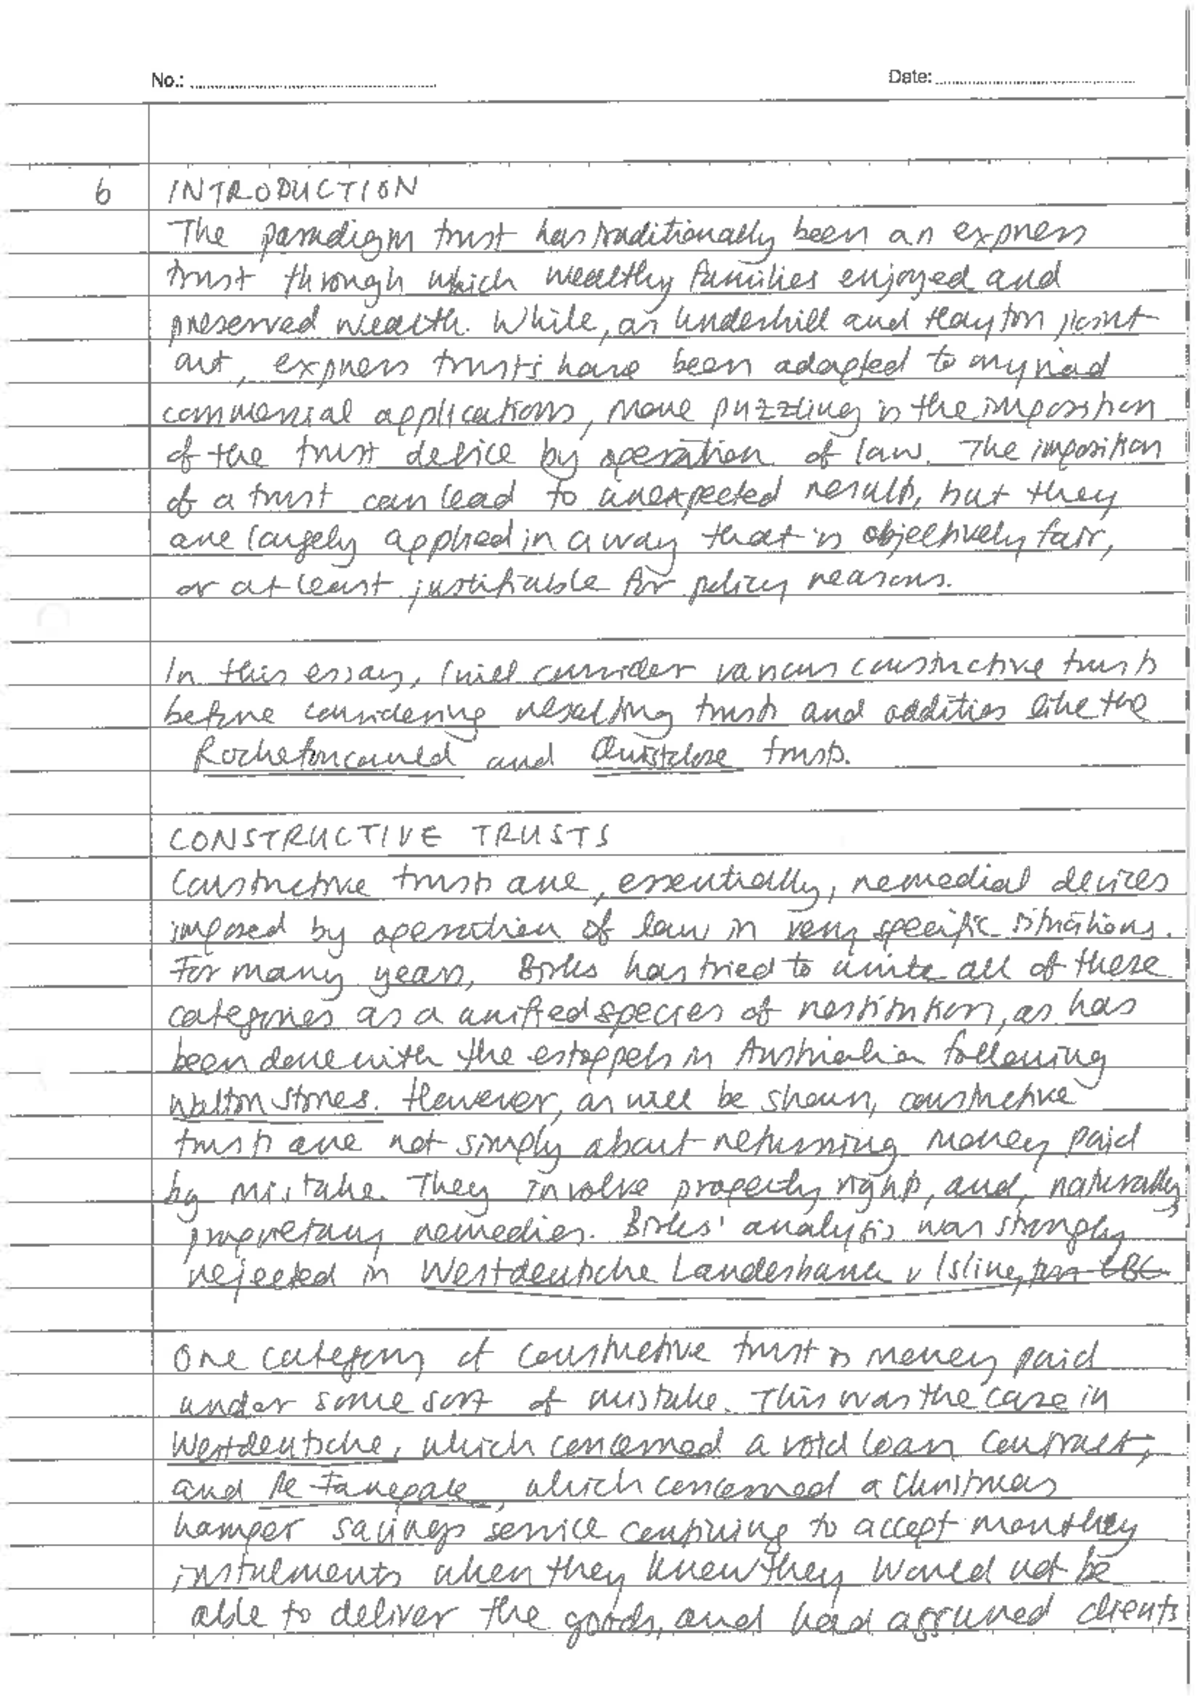 No.: Date:
6 INTRODUCTION
The paradigm trust has traditionally been an express
trust through which wealthy families enjoyed and
preserved wealth. While, as Underhill and Hayton point
out, express trusts have been adapted to myriad
commercial applications, more puzzling is the imposition
of the trust device by operation of law. The imposition
of a trust can lead to unexpected results, but they
are largely applied in a way that is objectively fair,
or at least justifiable for policy reasons.
In this essay, I will consider various constructive trusts
before considering resulting trusts and oddities like the
Rochefoucauld and Quistclose trusts.
CONSTRUCTIVE TRUSTS
Constructive trusts are, essentially, remedial devices
imposed by operation of law in very specific situations.
For many years, Birks has tried to unite all of these
categories as a unified species of restitution, as has
been done with the estoppels in Australia following
Walton Stores. However, as will be shown, constructive
trusts are not simply about returning money paid
by mistake. They involve property rights, and, naturally
proprietary remedies. Birks' analysis was strongly
rejected in Westdeutsche Landesbank v Islington LBC
One category of constructive trust is money paid
under some sort of mistake. This was the case in
Westdeutsche, which concerned a void loan contract,
and Re Farepak, which concerned a Christmas
hamper savings service continuing to accept monthly
instalments when they knew they would not be
able to deliver the goods, and had assured clients